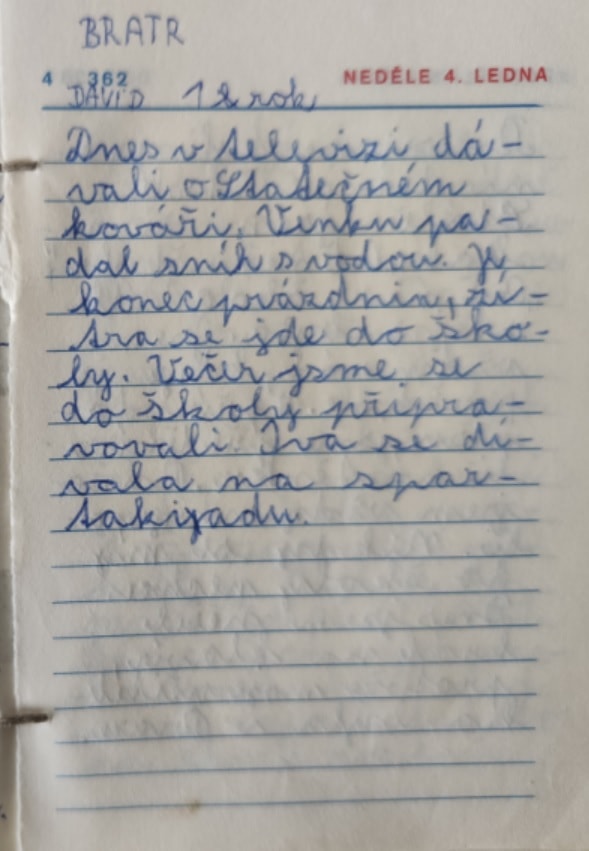 BRATR
4 362 NEDĚLE 4. LEDNA
DAVID 12 rok
Dnes v televizi dá-
vali o Statečném
kováři. Venku pa-
dal sníh s vodou. Je
konec prázdnin, zí-
tra se jde do ško-
ly. Večer jsme se
do školy připra-
vovali. Iva se dí-
vala na spar-
takiyadu.